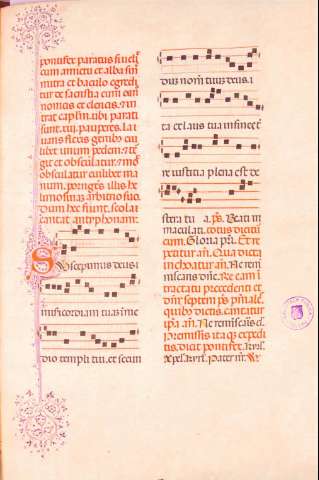 pontifex paratus si uelit
cum amictu et alba sine
mitra et baculo egredi
tur de sacristia cum cano
nicis et clericis. et in
trat capitulum. ubi parati
sunt. xii. pauperes. la
uans flexis genibus cu
pedem. et
git et obsculatur. et
obsculatur cuilibet ma
num. porriges illis. he
limosinas arbitrio suo.
dum hec fiunt. scola
cantat antyphonam.
Suscepimus deus. i
misericordiam tuam in me
dio templi tui. et secun
dum nomen tuum deus. i
ta et laus tua in fines t
re iusticia plena est de
xtera tua. ps. Beati in
maculati. totus dicitur
cum. Gloria pri. Et re
petitur an. Qua dicta
inchoatur an. Ne remi
niscaris dne. Ne cam
tractatu precedenti et
dnr septem ps pniales.
quibus dictis. cantatur
ipa an. Ne reminiscaris.
Premissis itaque expedi
tis. dicit pontifex. Kyrl.
Xpel. Kyrl. Pater nr.